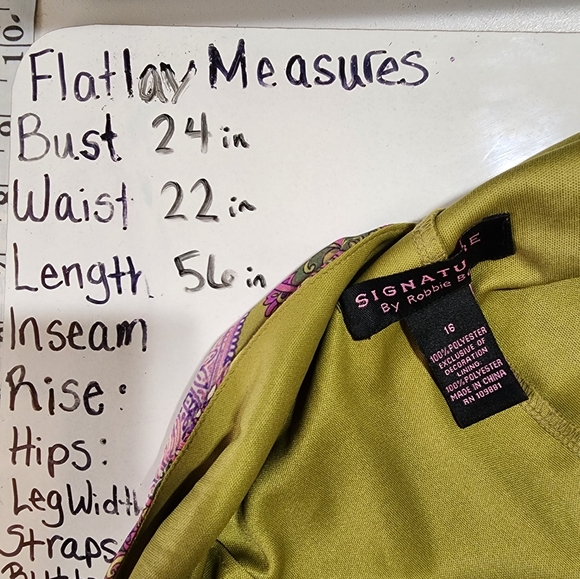 10
Flatlay Measures
Bust 24 in
Waist 22 in
Length 56 in
Inseam
Rise:
Hips:
Leg Width
Straps
SIGNATU
By Robbie B
16
100% POLYESTER
EXCLUSIVE OF
DECORATION
LINING:
100% POLYESTER
MADE IN CHINA
RN 109881